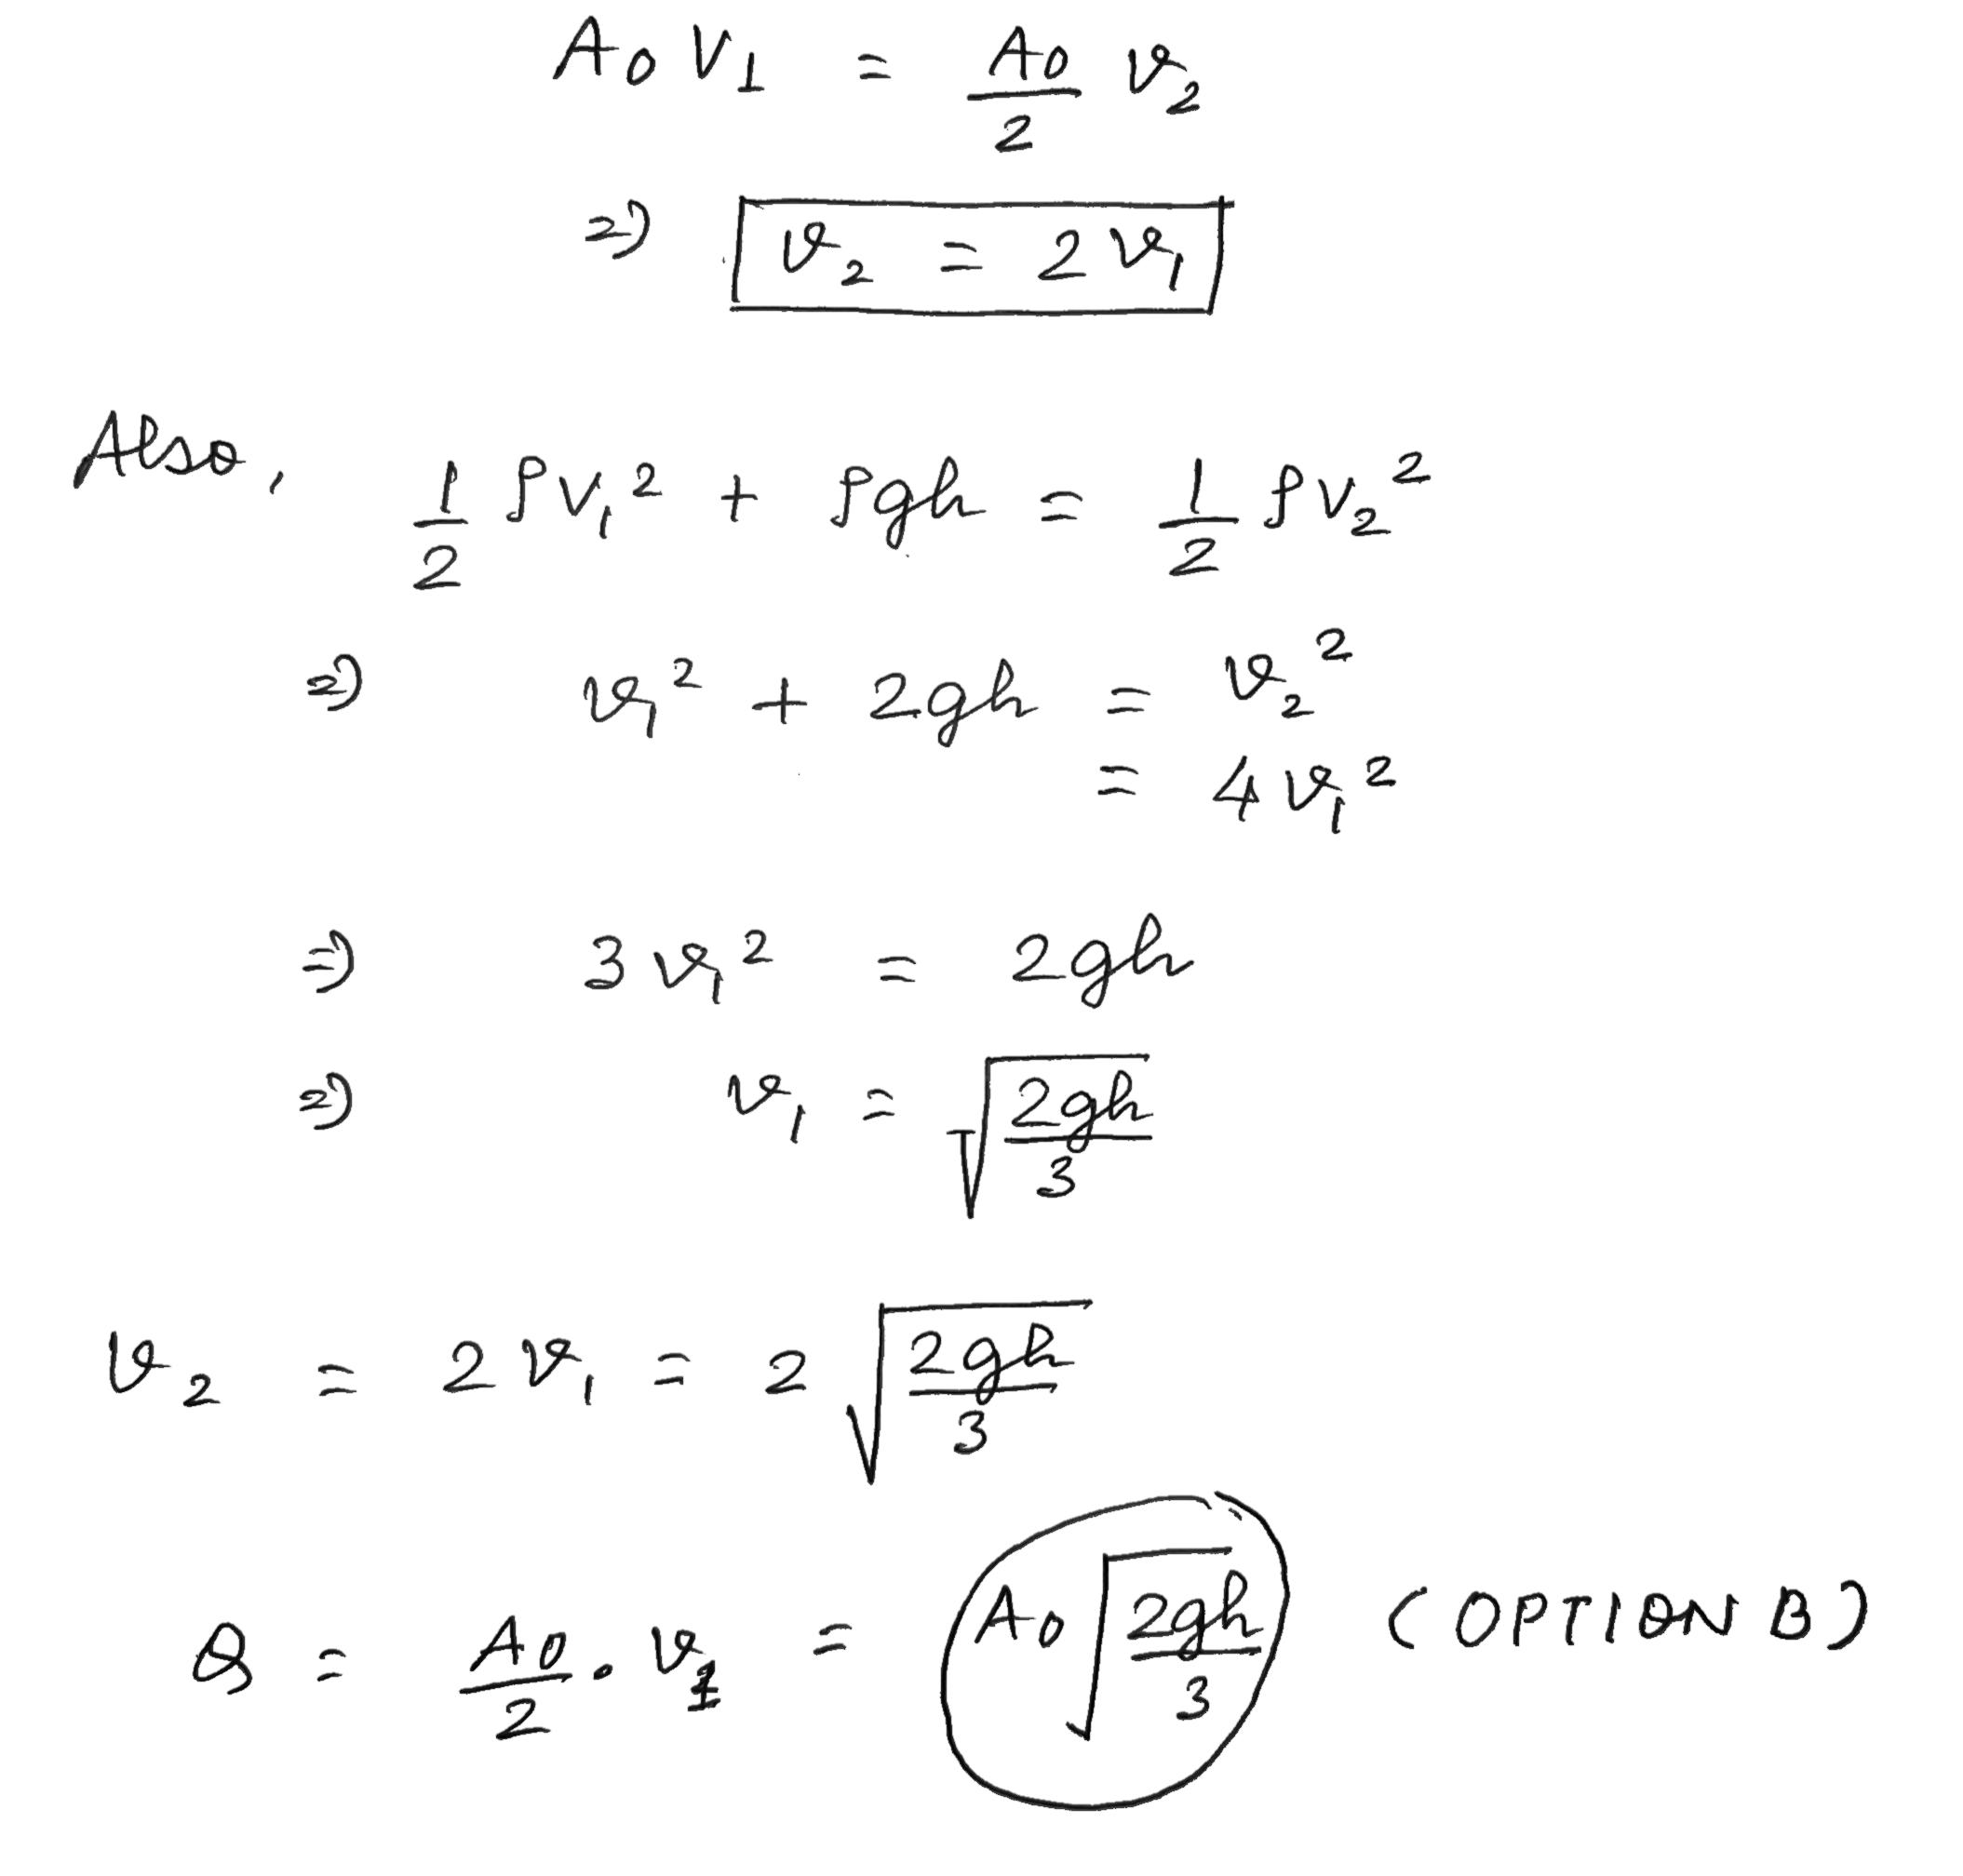 A₀ V₁ = A₀/2 v₂
⇒ v₂ = 2 v₁
Also, 1/2 ρV₁² + ρgh = 1/2 ρV₂²
⇒ v₁² + 2gh = v₂²
= 4 v₁²
⇒ 3 v₁² = 2gh
⇒ v₁ = √(2gh/3)
v₂ = 2 v₁ = 2 √(2gh/3)
Q = A₀/2 · v = A₀ √(2gh/3) (OPTION B)